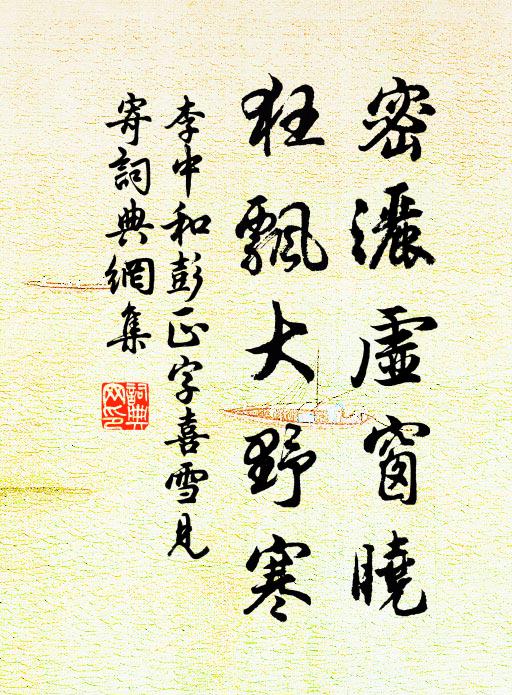 密灑虛窗曉
狂飄大野寒
李中和彭正字喜雪見
寄詞典網集
詞典
网印